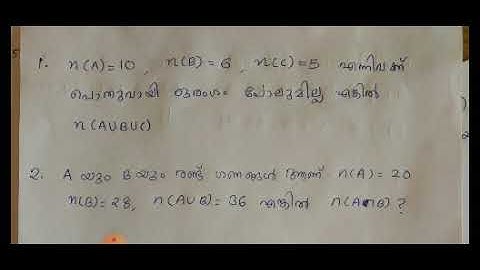 1. n(A)=10, n(B)=6, n(C)=5 എന്നിവക്ക്
പൊതുവായി ഒരംഗം പോലുമില്ല എങ്കിൽ
n(AUBUC)
2. A യും B യും രണ്ട് ഗണങ്ങൾ ആണ് n(A)=20
n(B)=28, n(AUB)=36 എങ്കിൽ n(A∩B)?